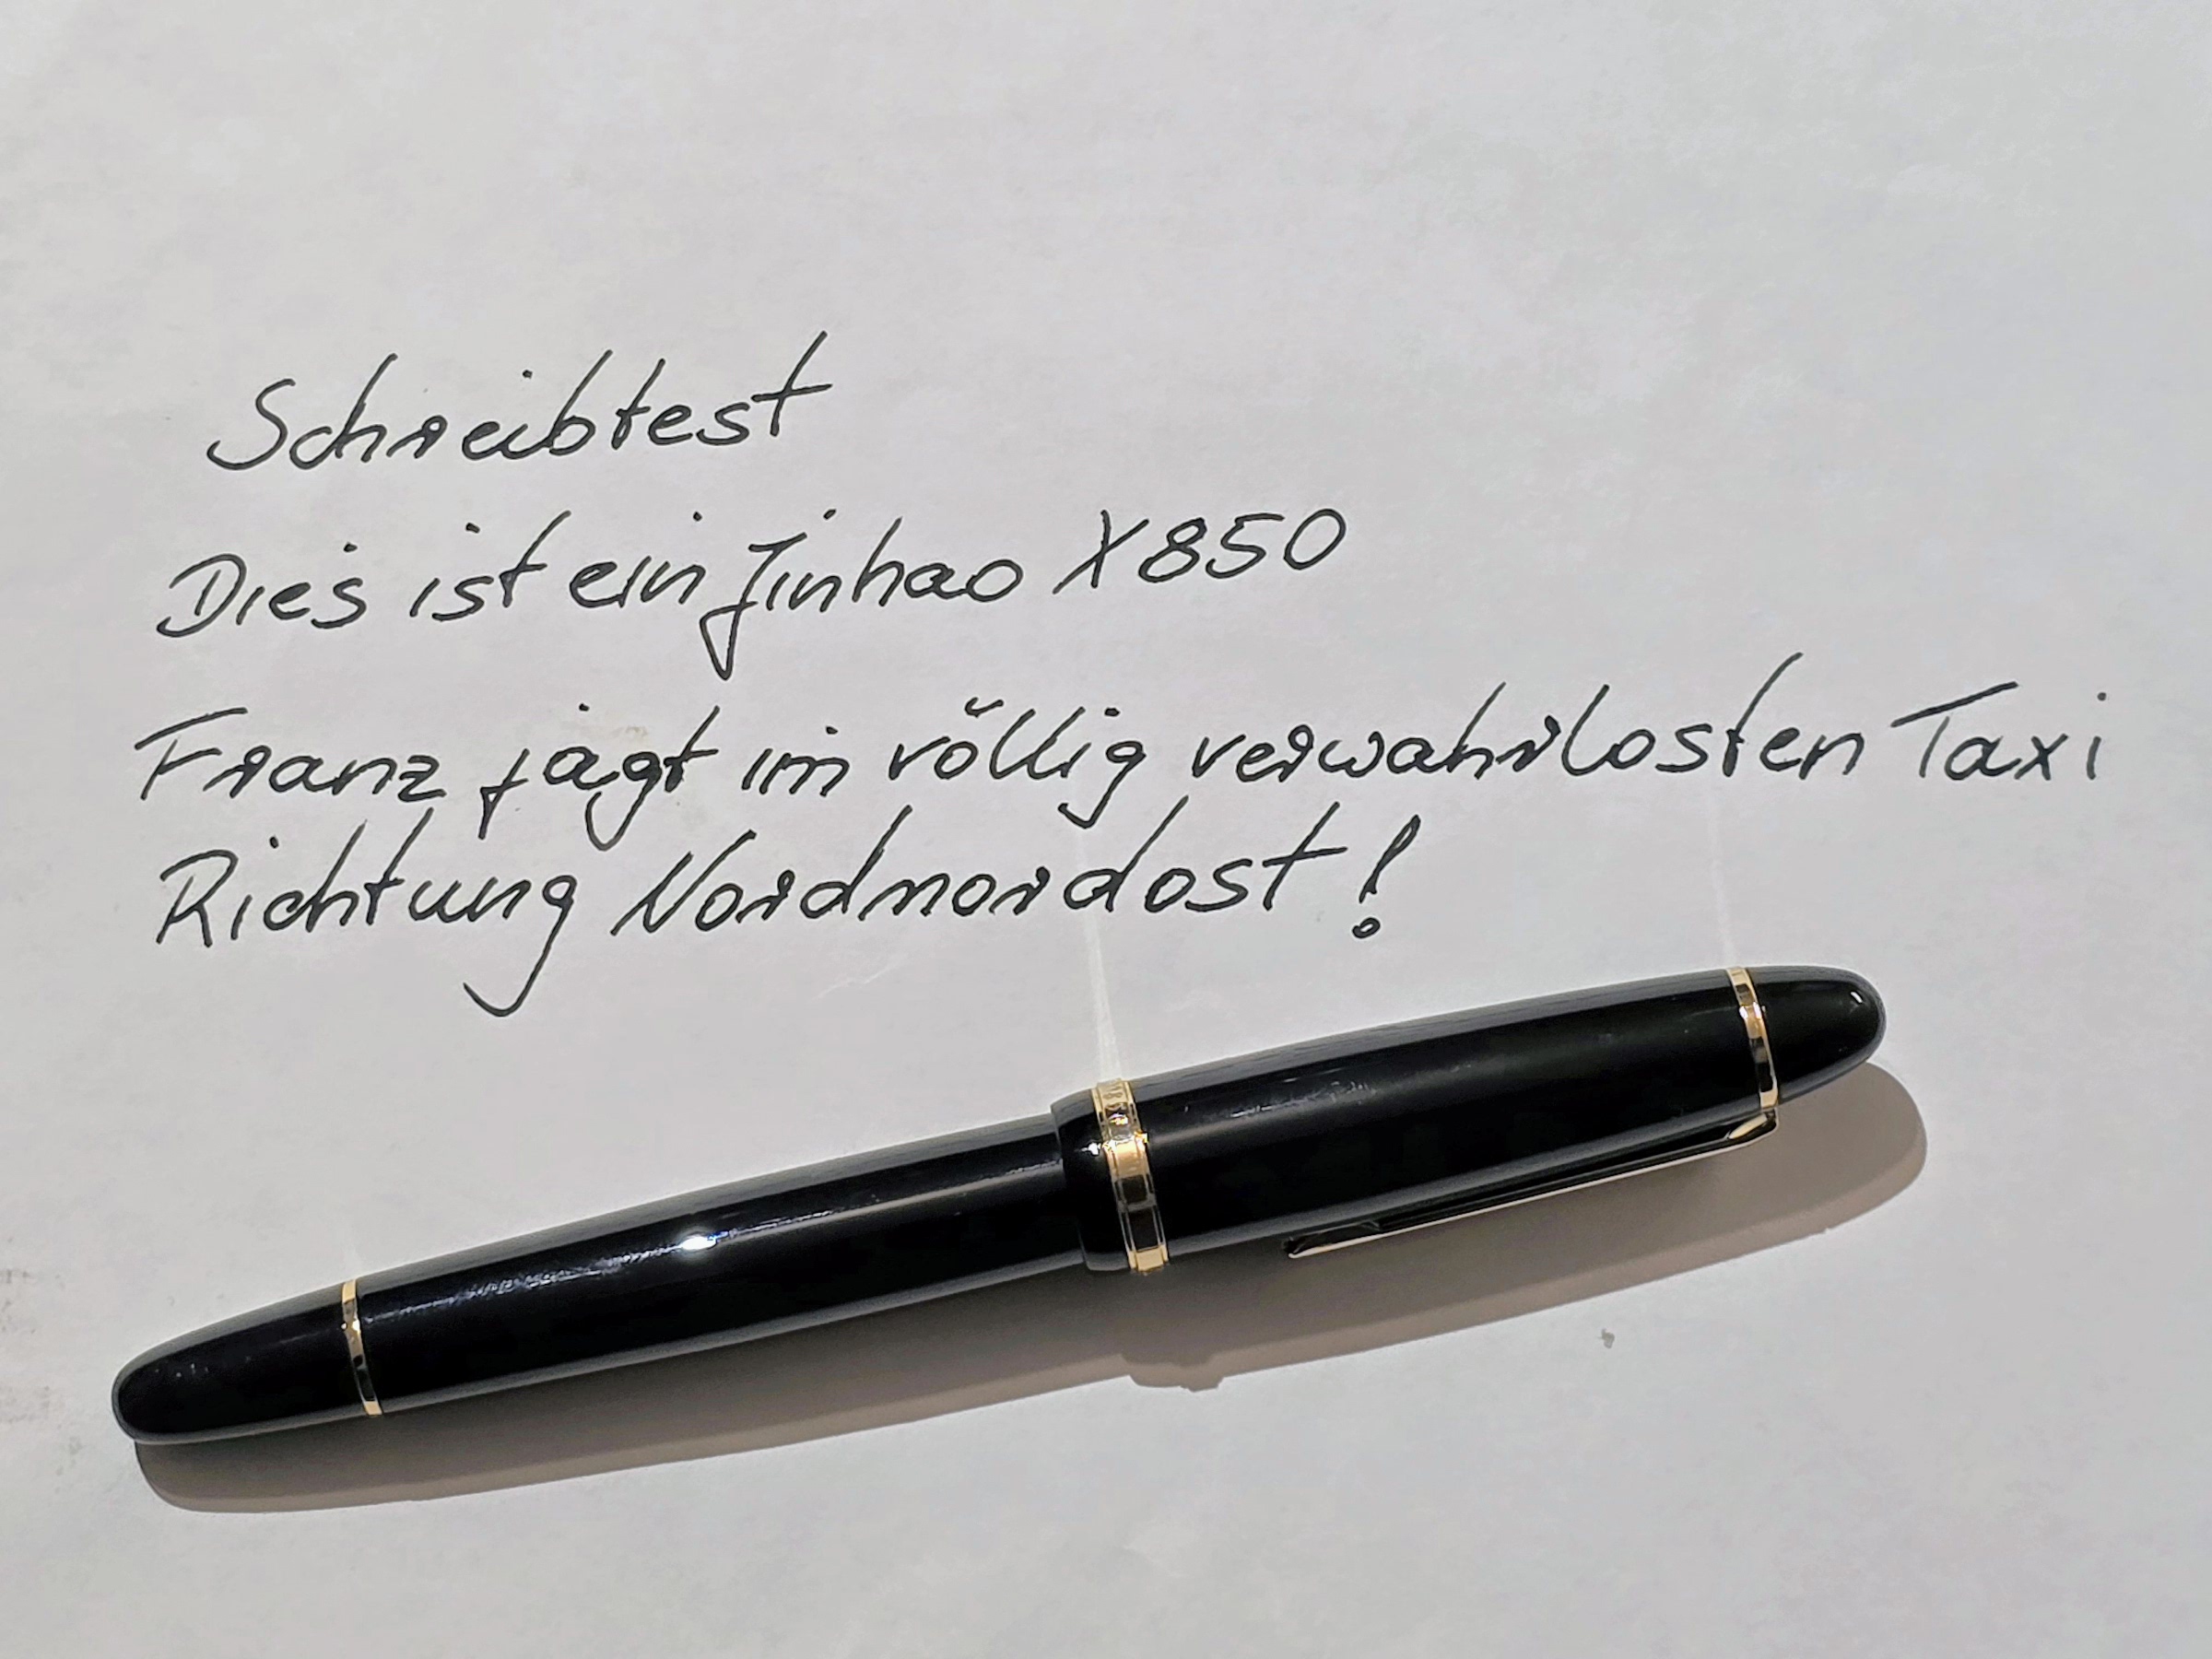 Schreibtest
Dies ist ein Jinhao X850
Franz jagt im völlig verwahrlosten Taxi
Richtung Nordnordost!